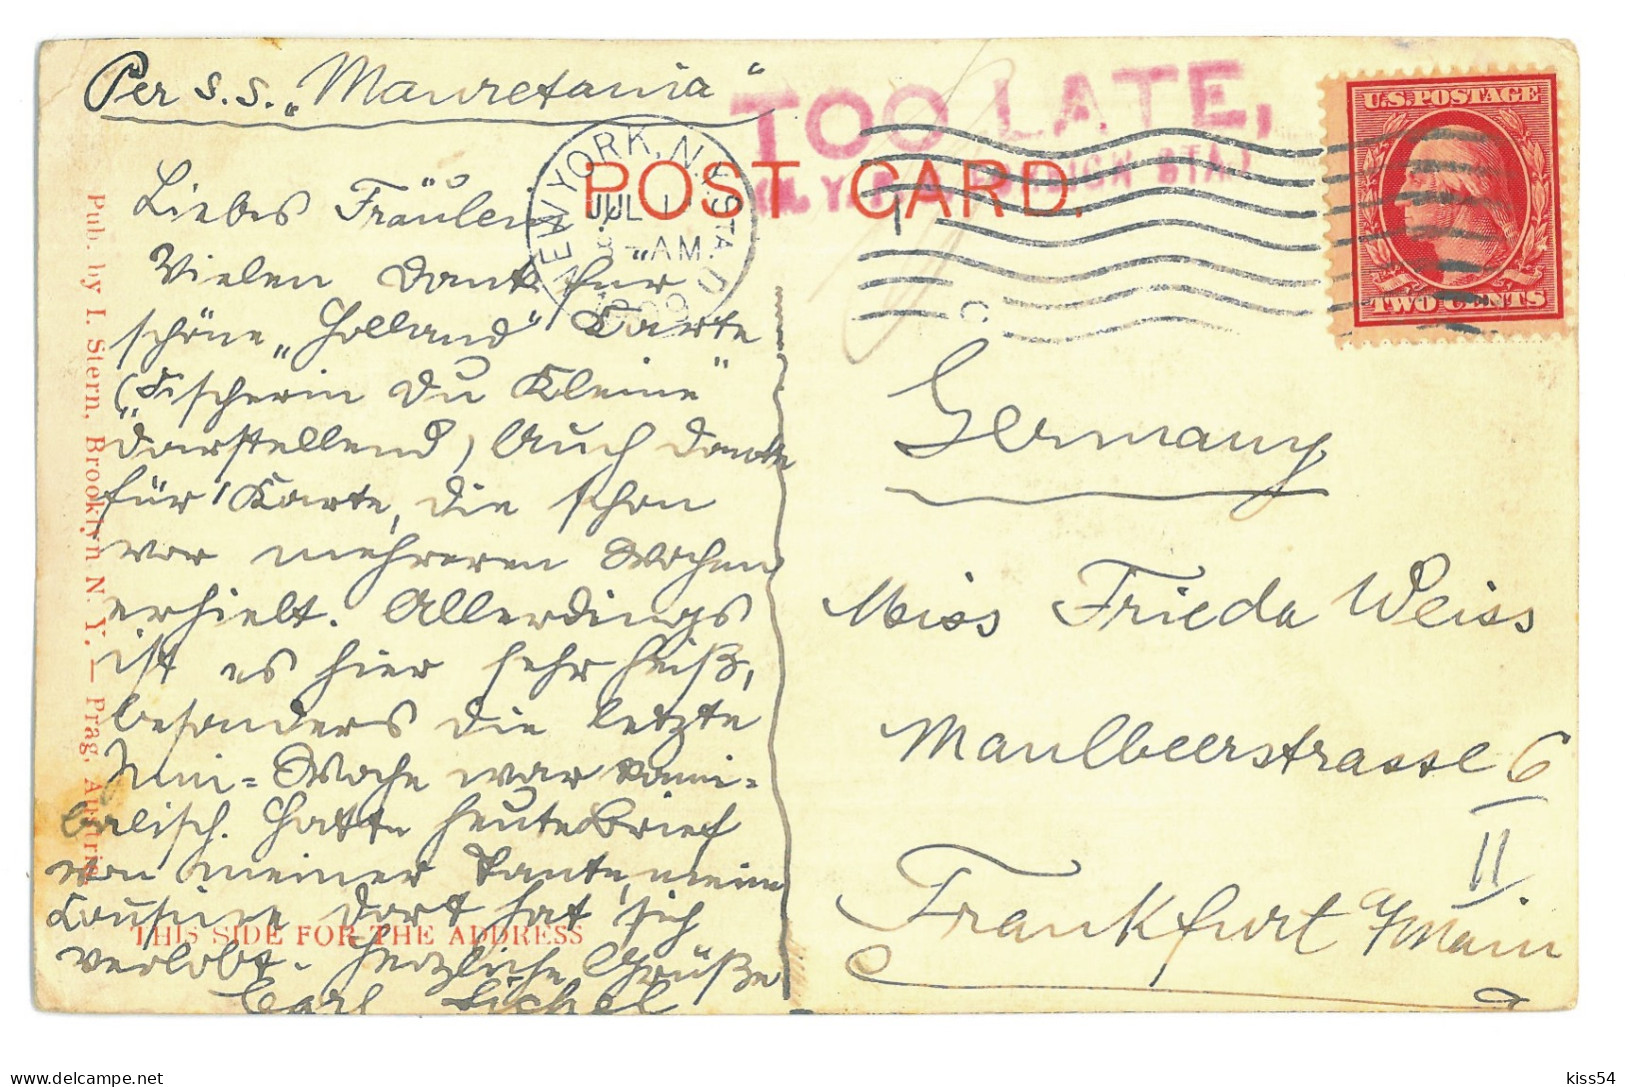 Per S. S. „Mauretania“
TOO LATE,
N.Y.P.O. FOREIGN STA.
POST CARD.
NEW YORK, N.Y. STA.
JUL 1
AM
1909
U.S. POSTAGE
TWO CENTS
Liebes Fräulein
Vielen Dank für
schöne „Holland“ Karte
(„Fischerin du Kleine“
darstellend) Auch danke
für Karte, die schon
vor mehreren Wochen
erhielt. Allerdings
ist es hier sehr heiß,
besonders die letzte
Juni-Woche war kanni-
balisch. Hatte heute Brief
von meiner Tante, meine
Cousine dort hat sich
verlobt. Herzliche Grüße
Carl
Germany
Miss Frieda Weiss
Maulbeerstrasse 6
II
Frankfurt a/Main
Pub. by I. Stern, Brooklyn N. Y. — Prag, Austria.
THIS SIDE FOR THE ADDRESS
kiss54